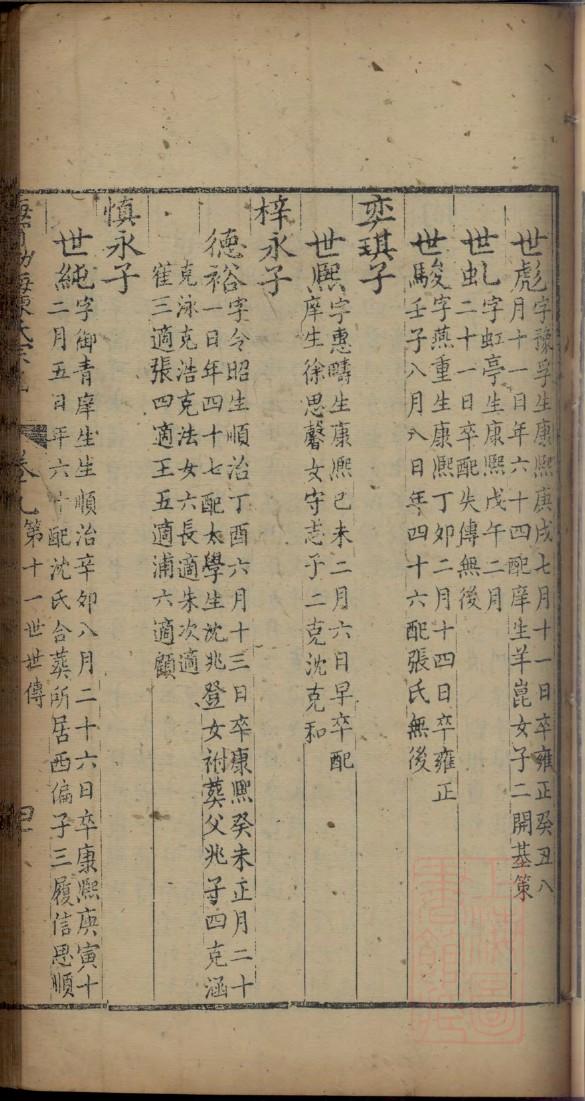 世彪字豫孚生康熙庚戌七月十一日卒雍正癸丑八
月十一日年六十四配庠生羊崑女子二開基策
世虬字虹亭生康熙戊午二月
二十一日卒配失傳無後
世駿字燕重生康熙丁卯二月十四日卒雍正
壬子八月八日年四十六配張氏無後
奕琪子
世熙字惠疇生康熙己未二月六日早卒配
庠生徐思馨女守志子二克沈克和
梓永子
德裕字令昭生順治丁酉六月十三日卒康熙癸未正月二十
一日年四十七配太學生沈兆登女祔葬父兆子四克涵
克泳克浩克法女六長適朱次適
崔三適張四適王五適浦六適顧
慎永子
世純字御青庠生生順治辛卯八月二十六日卒康熙庚寅十
二月五日年六十配沈氏合葬所居西偏子三履信思順
卷九第十一世世傳